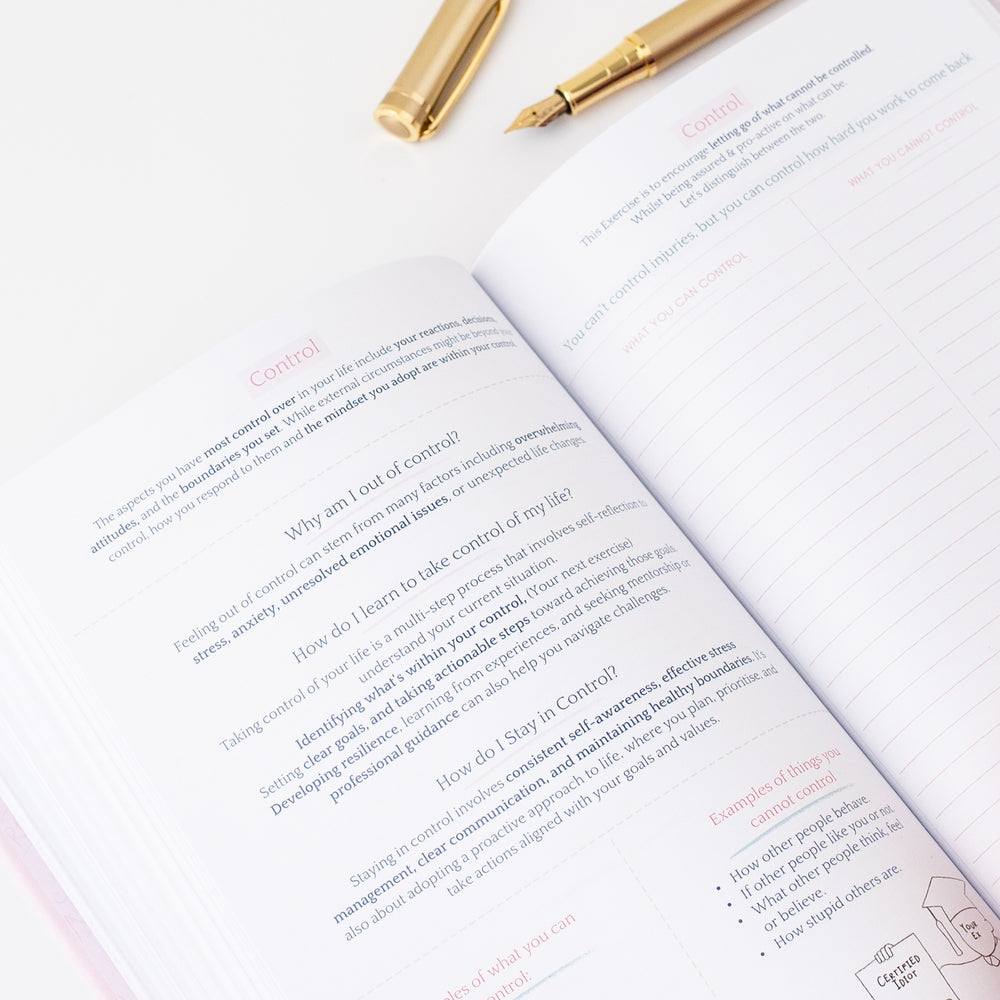 Control
The aspects you have most control over in your life include your reactions, decisions,
attitudes, and the boundaries you set. While external circumstances might be beyond your
control, how you respond to them and the mindset you adopt are within your control
Why am I out of control?
Feeling out of control can stem from many factors including overwhelming
stress, anxiety, unresolved emotional issues, or unexpected life changes.
How do I learn to take control of my life?
Taking control of your life is a multi-step process that involves self-reflection to
understand your current situation.
Identifying what's within your control, (Your next exercise)
Setting clear goals, and taking actionable steps toward achieving those goals.
Developing resilience, learning from experiences, and seeking mentorship or
professional guidance can also help you navigate challenges.
How do I Stay in Control?
Staying in control involves consistent self-awareness, effective stress
management, clear communication, and maintaining healthy boundaries. It's
also about adopting a proactive approach to life, where you plan, prioritise, and
take actions aligned with your goals and values.
of what you can
control:
Examples of things you
cannot control
• How other people behave.
• If other people like you or not
• What other people think, feel
or believe.
• How stupid others are.
CERTIFIED
IDIOT
YOUR
EX
Control
This Exercise is to encourage letting go of what cannot be controlled.
Whilst being assured & pro-active on what can be.
Let's distinguish between the two.
You can't control injuries, but you can control how hard you work to come back
WHAT YOU CAN CONTROL
WHAT YOU CANNOT CONTROL